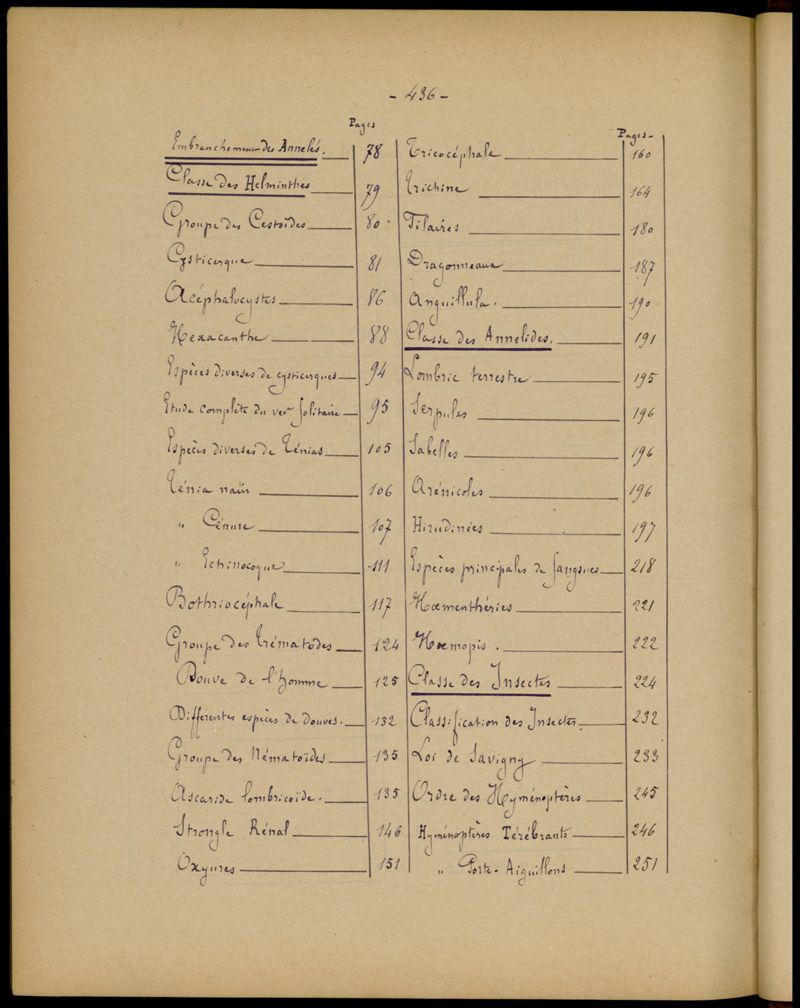 - 436 -
Pages
Embranchement des Annelés. 78
Classe des Helminthes 79
Groupe des Cestoïdes 80
Cysticerque 81
Acéphalocystes 86
Hexacanthe 88
Espèces diverses de cysticerques 94
Etude complète du ver Solitaire 95
Espèces diverses de Ténias 105
Ténia nain 106
" Cénure 107
" Echinocoque 111
Bothriocéphale 117
Groupe des Trématodes 124
Douve de l'homme 125
Différentes espèces de douves. 132
Groupe des Nématoïdes 135
Ascaride lombricoïde. 135
Strongle Rénal 146
Oxyures 151
Pages
Tricocéphale 160
Trichine 164
Filaires 180
Dragonneaux 187
Anguillula. 190
Classe des Annelides. 191
Lombric terrestre 195
Serpules 196
Sabelles 196
Arénicoles 196
Hirudinées 197
Espèces principales de Sangsues 218
Hœmenthéries 221
Hœmopis. 222
Classe des Insectes 224
Classification des Insectes 232
Loi de Savigny 233
Ordre des Hyménoptères 245
Hyménoptères Térébrants 246
" Porte-Aiguillons 251